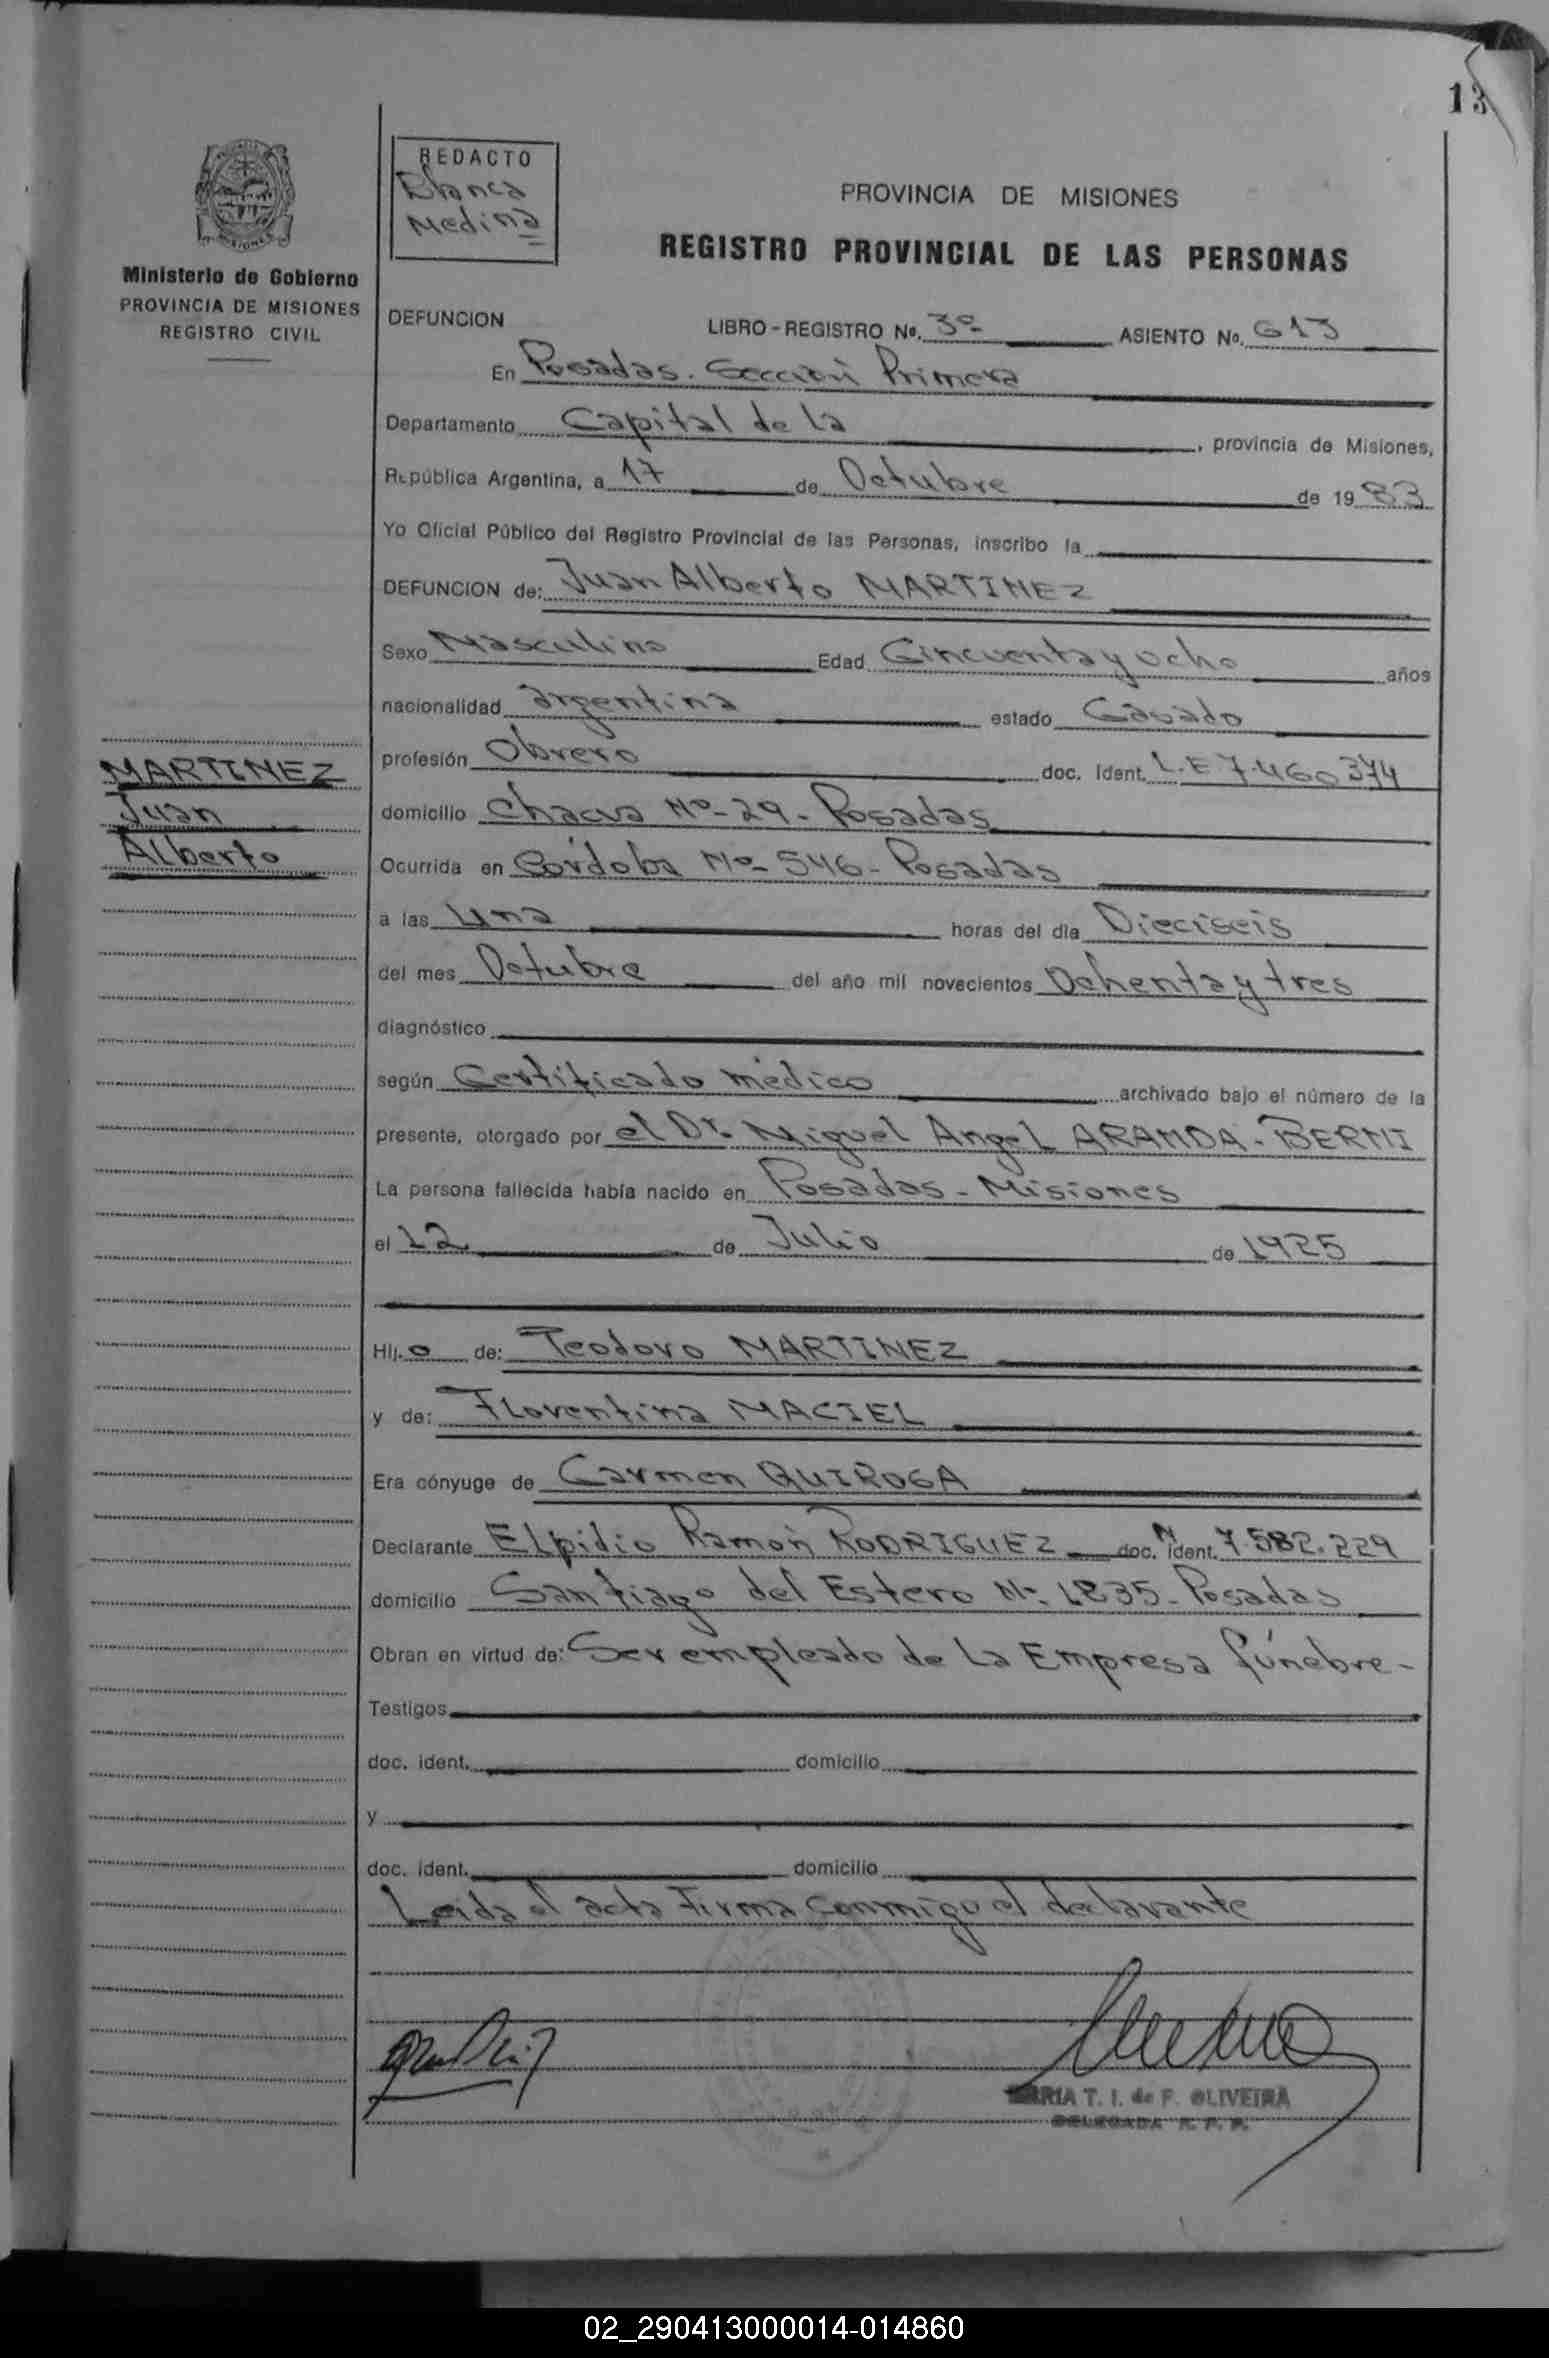 13
REDACTO
Blanca
Medina
PROVINCIA DE MISIONES
REGISTRO PROVINCIAL DE LAS PERSONAS
MISIONES
Ministerio de Gobierno
PROVINCIA DE MISIONES
REGISTRO CIVIL
DEFUNCION LIBRO-REGISTRO Nº. 3º ASIENTO Nº. 613
En Posadas. Sección Primera
Departamento Capital de la , provincia de Misiones,
República Argentina, a 17 de Octubre de 1983
Yo Oficial Público del Registro Provincial de las Personas, inscribo la
DEFUNCION de: Juan Alberto MARTINEZ
Sexo Masculino Edad Cincuenta y ocho años
nacionalidad argentina estado Casado
profesión Obrero doc. ident. L.E 7.460374
domicilio Chacra Nº-29- Posadas
Ocurrida en Córdoba Nº- 546- Posadas
a las una horas del día Dieciseis
del mes Octubre del año mil novecientos Ochenta y tres
diagnóstico
según Certificado médico archivado bajo el número de la
presente, otorgado por el Dr. Miguel Angel ARANDA-BERNI
La persona fallecida había nacido en Posadas - Misiones
el 12 de Julio de 1925
Hij.o de: Teodoro MARTINEZ
y de: Florentina MACIEL
Era cónyuge de Carmen QUIROGA
Declarante Elpidio Ramón RODRIGUEZ doc. ident. 7.582.229
domicilio Santiago del Estero Nº- 1835- Posadas
Obran en virtud de: Ser empleado de la Empresa fúnebre-
Testigos
doc. ident. domicilio
y
doc. ident. domicilio
Leida el acta firma conmigo el declarante
MARIA T. I. de F. OLIVEIRA
DELEGADA R. P. P.
MARTINEZ
Juan
Alberto
02_290413000014-014860